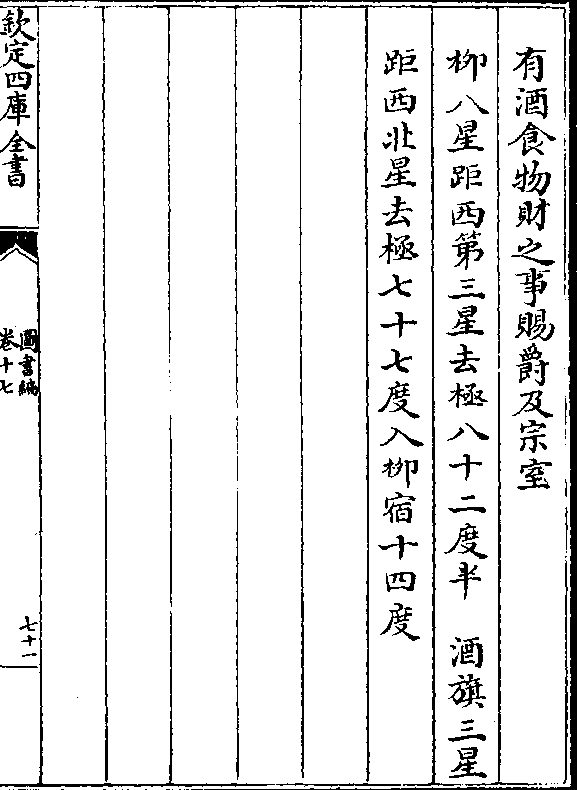 有酒食物財之事賜爵及宗室
柳八星距西第三星去極八十二度半　酒旗三星
距西北星去極七十七度入柳宿十四度
欽定四庫全書
圖書編
卷十七
七十一